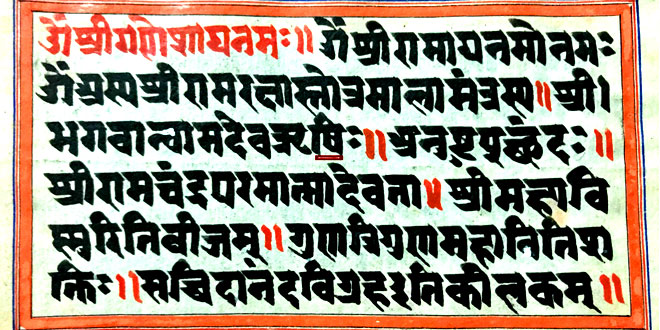 ॐश्रीगणेशायनमः॥ॐश्रीरामायनमोनमः
ॐअस्यश्रीरामरक्षास्तोत्रमालामंत्रस्य॥श्री।
भगवान्वामदेवऋषिः॥अनुष्टुप्छंदः॥
श्रीरामचंद्रपरमात्मादेवता॥श्रीमहावि
स्मरितिबीजम्॥गुणत्रिगुणमहानितिश
क्तिः॥सच्चिदानंदविग्रहइतिकीलकम्॥